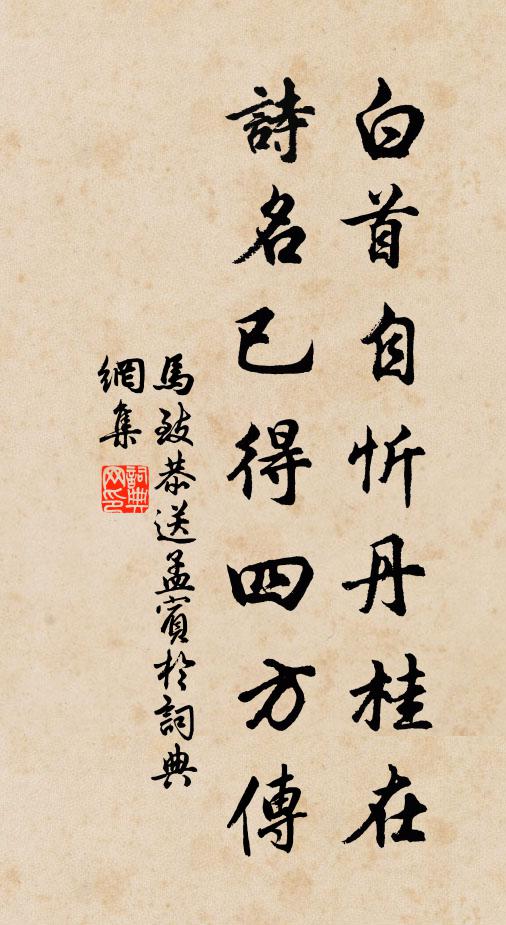 白首自忻丹桂在
詩名已得四方傳
馬致恭送孟賓於詞典
網集
詞典
网印